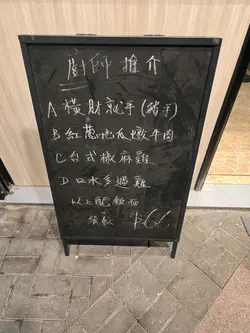 廚師推介
A 橫財就手(豬手)
B 紅葱地瓜燉牛肉
C 台式椒麻雞
D 口水多過雞
以上配飯面
飲 $66